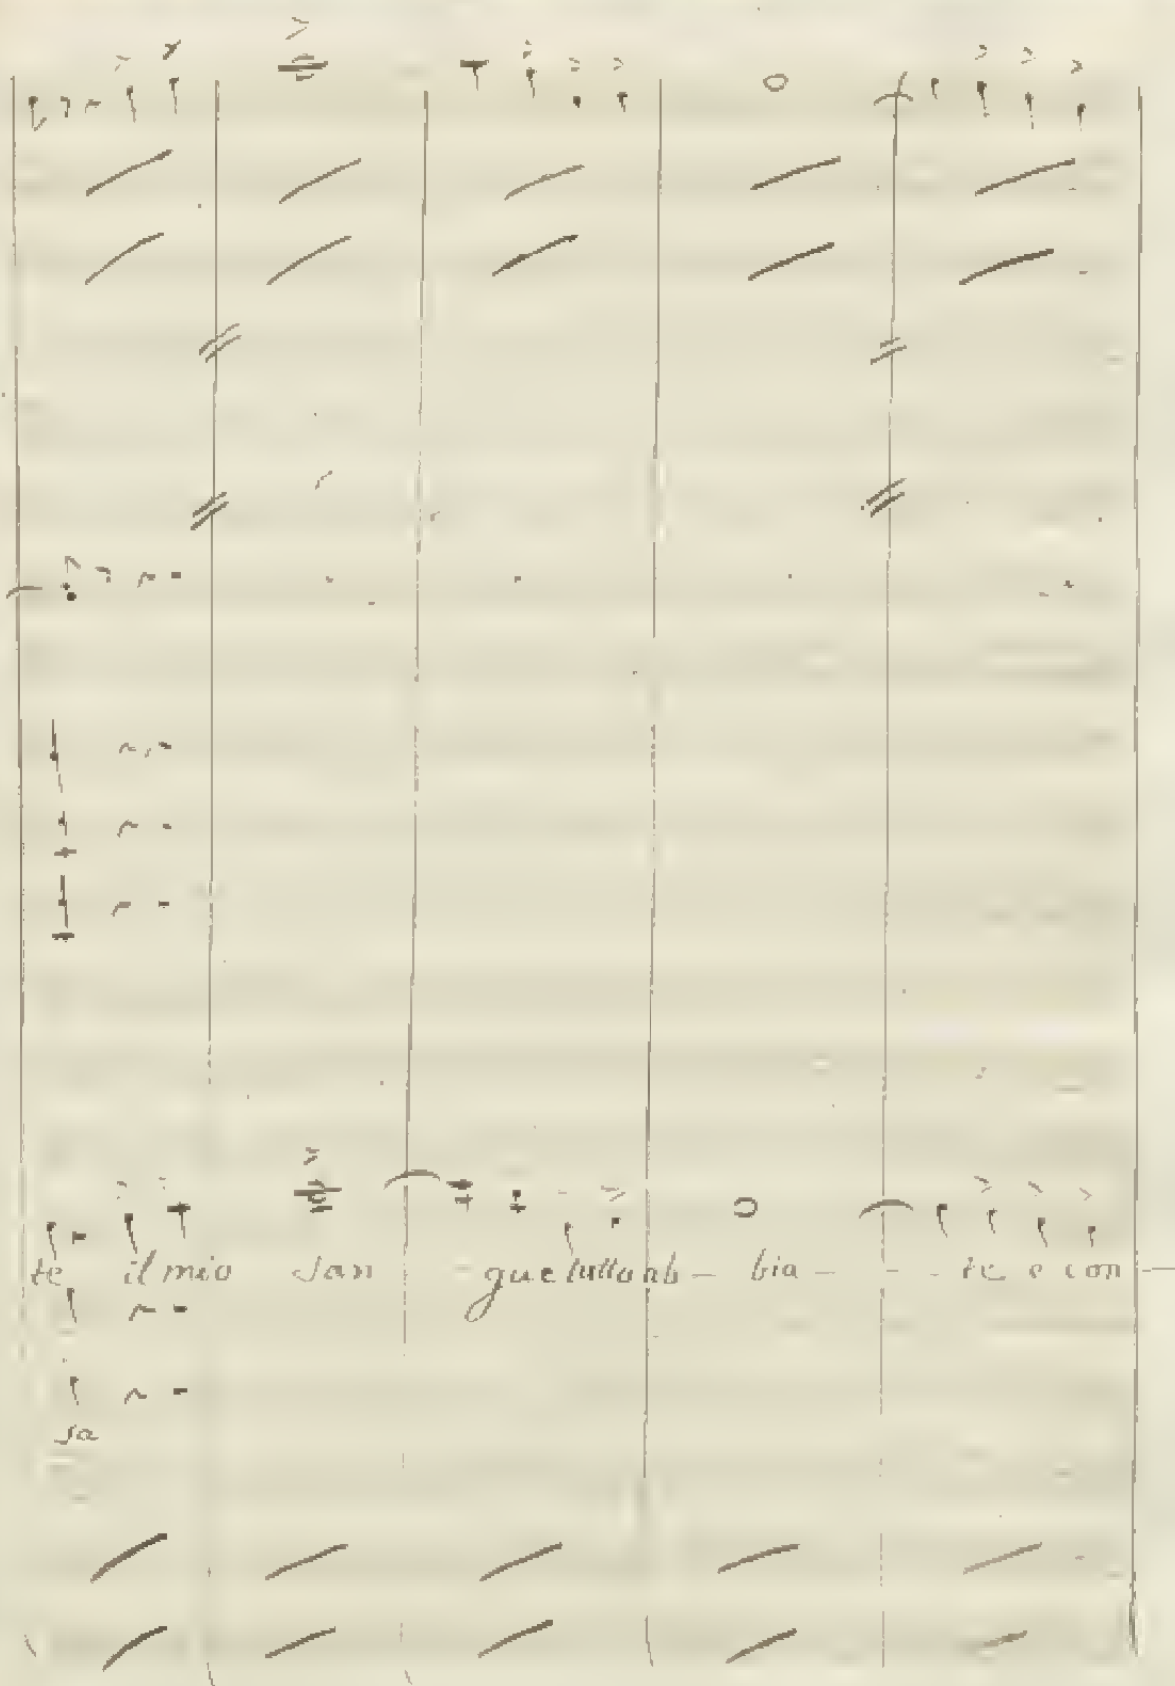 te il mio san - gue tutto ab - bia - - - te e con -
sa